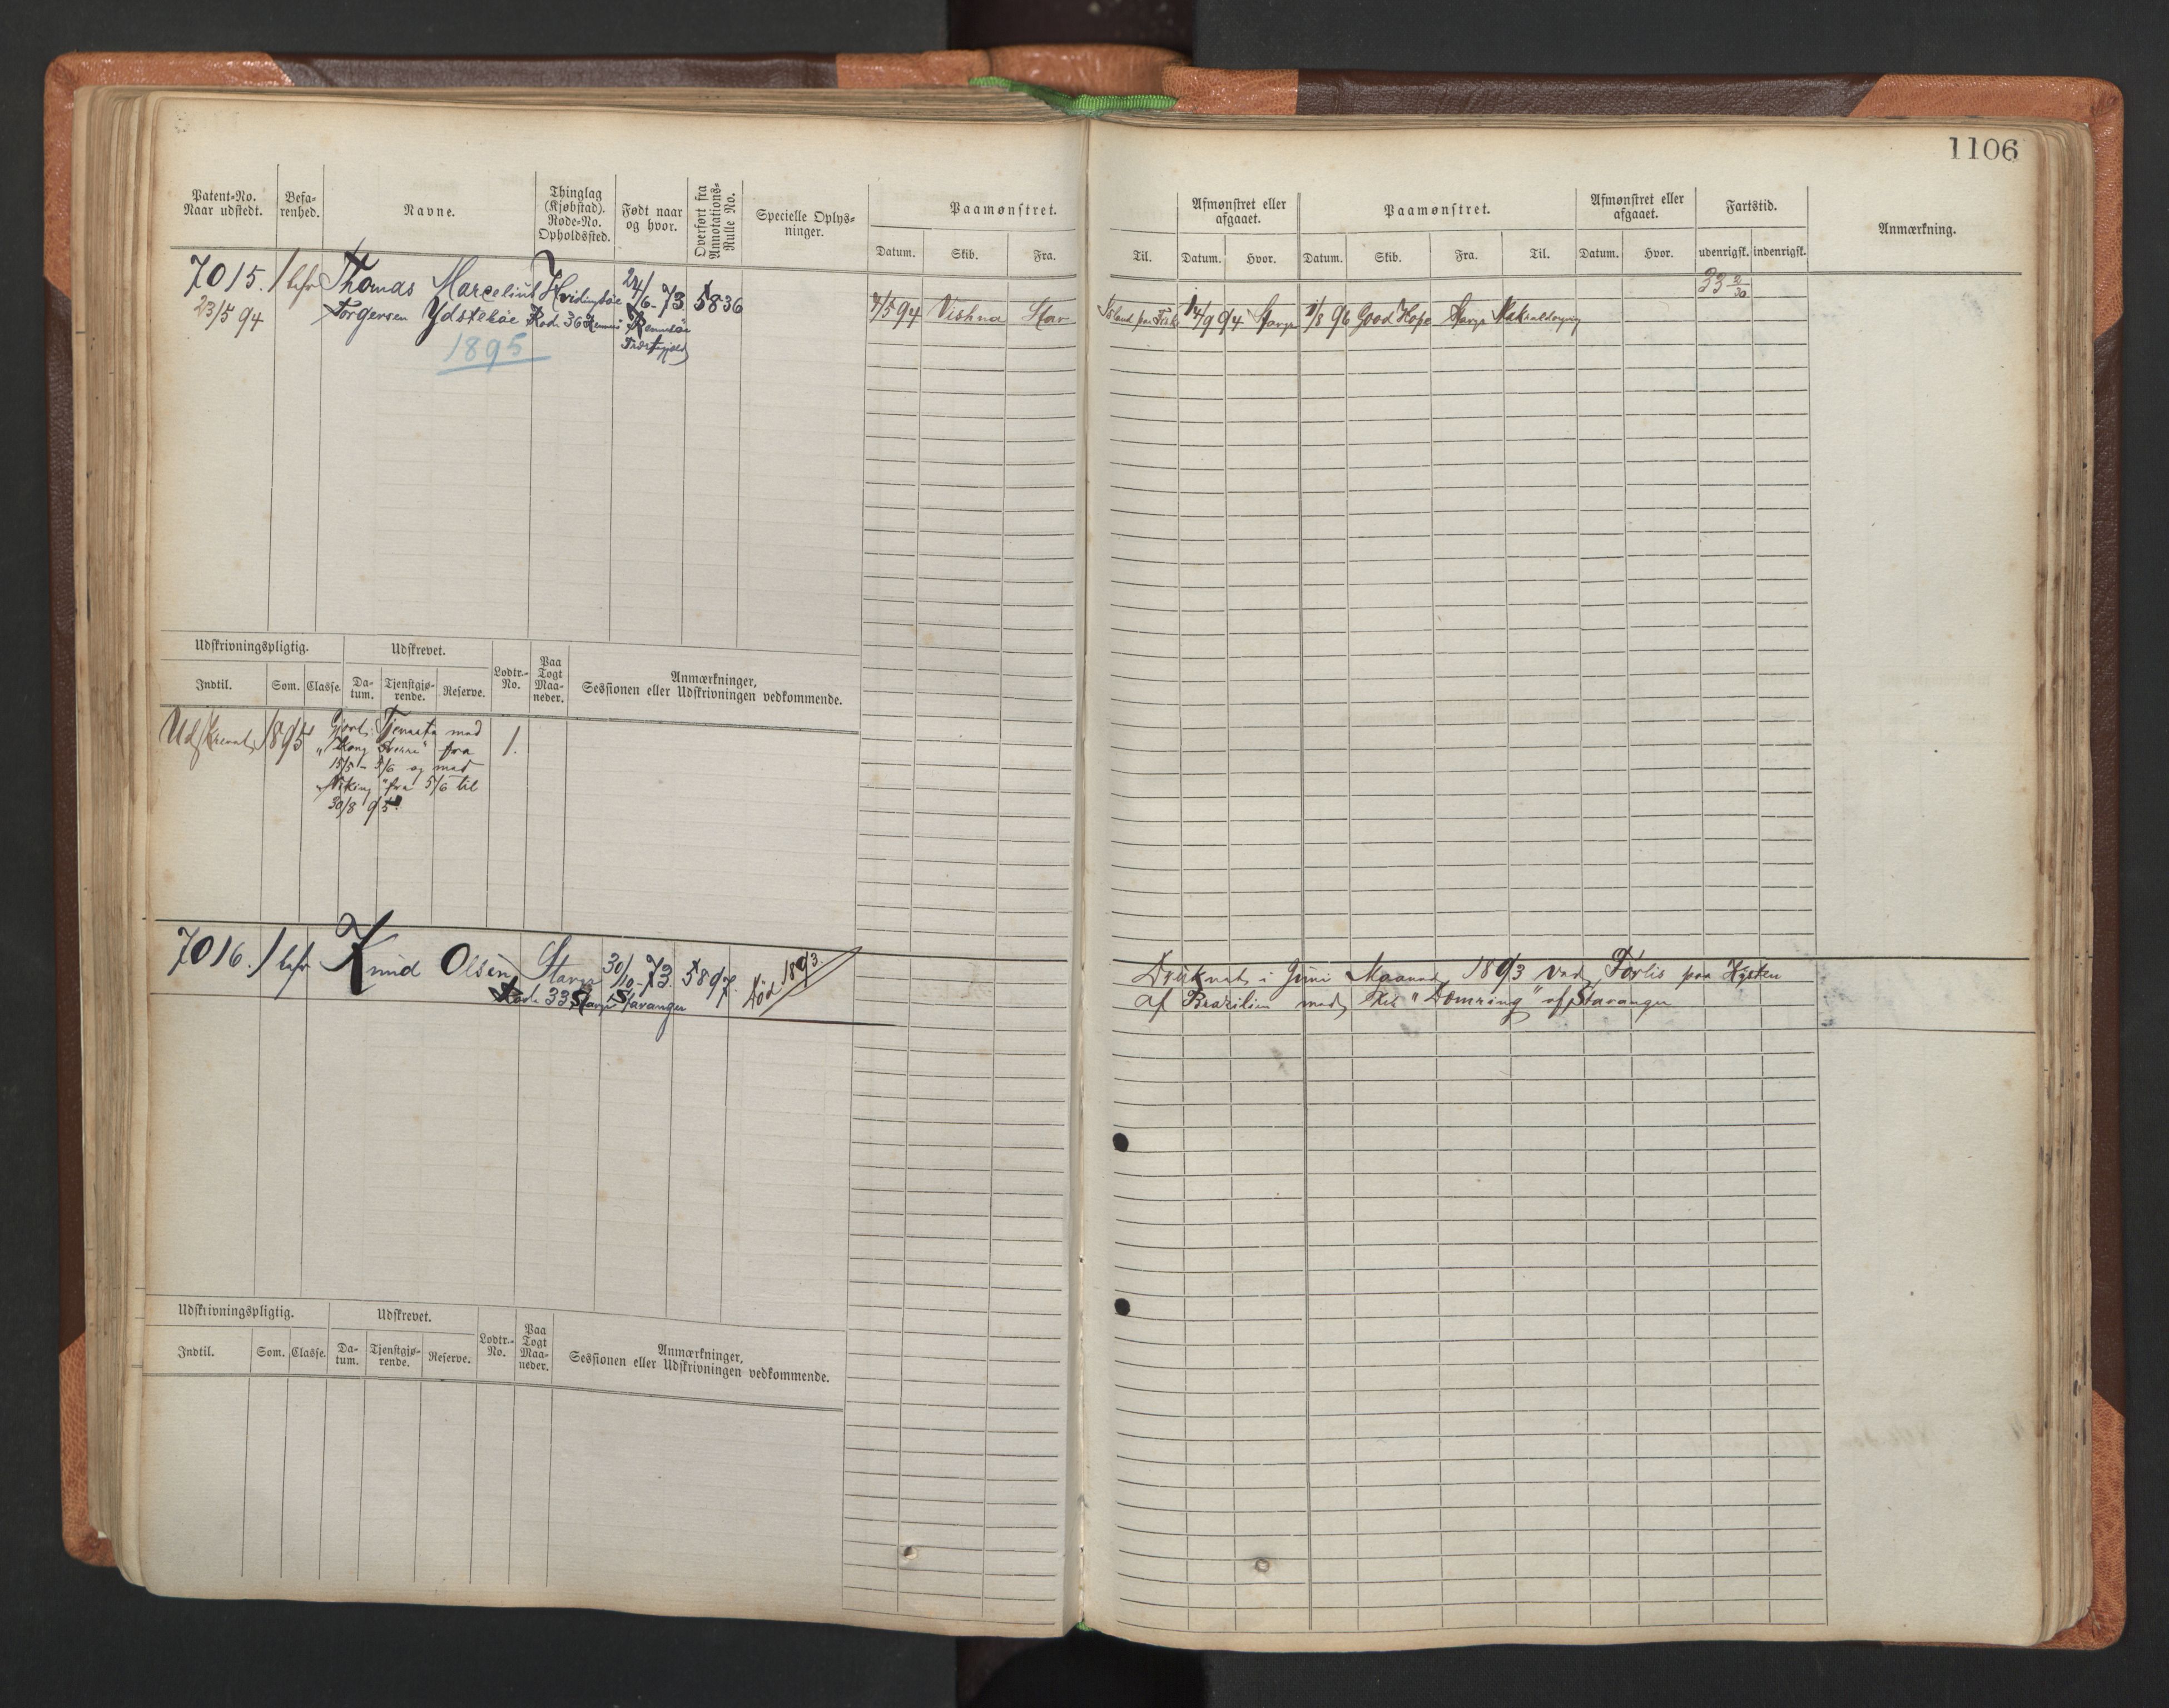 1106
Patent-No.
Naar udstedt.
Befa-
renhed.
Navne.
Thinglag
(Kjøbstad).
Rode-No.
Opholdssted.
Født naar
og hvor.
Overført fra
Annotations-
Rulle No.
Specielle Oplys-
ninger.
Paamønstret.
Datum. Skib. Fra.
Til.
Afmønstret eller
afgaaet.
Datum. Hvor.
Paamønstret.
Datum. Skib. Fra. Til.
Afmønstret eller
afgaaet.
Datum. Hvor.
Fartstid.
udenrigsk. indenrigsk.
Anmærkning.
7015. 1 Thomas Marcelius Hvidingsøe 24/6-73 5836
23/5 94 Torgersen Ydstebøe Rode 36 Rennesøe
1895
4/5 94 Vishnu Stav
Island paa Fiske 14/9 94 Stavgr 1/8 96 Good Hope Stavgr
33 2/30
Udskrivningspligtig. Udskrevet.
Lodtr.-
No.
Paa
Togt
Maa-
neder.
Anmærkninger,
Sessionen eller Udskrivningen vedkommende.
Indtil. Som. Classe. Da-
tum. Tjenstgjø-
rende. Reserve.
Udskrevet 1895 Gjort Tjeneste med 1.
"Kong Sverre" fra
15/5 - 5/6 og med
"Viking" fra 5/6 til
30/8 95.
7016. 1 Knud Olsen Stavgr 30/10-73. 5897. Død 1893.
Rode 33 Stavgr Stavanger
Druknet i Juni Maaned 1893 ved Forlis paa Kysten
af Brazilien med "Dæmring" af Stavanger
Udskrivningspligtig. Udskrevet.
Lodtr.-
No.
Paa
Togt
Maa-
neder.
Anmærkninger,
Sessionen eller Udskrivningen vedkommende.
Indtil. Som. Classe. Da-
tum. Tjenstgjø-
rende. Reserve.